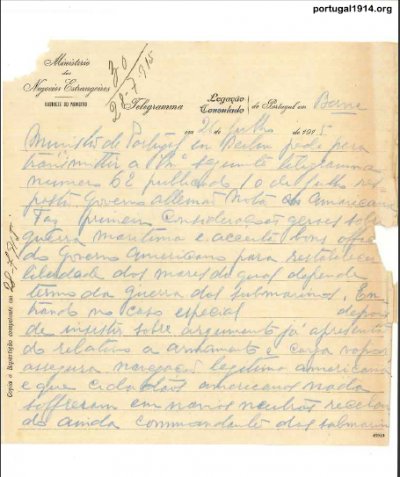 portugal1914.org
Ministerio
dos
Negocios Estrangeiros
GABINETE DO MINISTRO
30
28-7-915
Telegramma
Legação
Consulado
de Portugal em Berne
em 26 de julho de 1915
Ministro de Portugal em Berlim pede para
transmittir a V. Exª seguinte telegramma
numero 62 publicado 10 de julho res-
posta Governo allemão Nota Americana
Faz primeiro considerações geraes sobre
guerra maritima e acceita bons officios
do Governo Americano para restabelecer
liberdade dos mares do qual depende
termo da guerra dos submarinos. En-
trando no caso especial depois
de insistir sobre argumento já apresenta-
do relativo a armamento e carga vapor
assegura navegação legitima americana
e que cidadãos americanos nada
soffreram em navios neutros receben-
do ainda commandante dos submarin
Copia á Repartição competente em